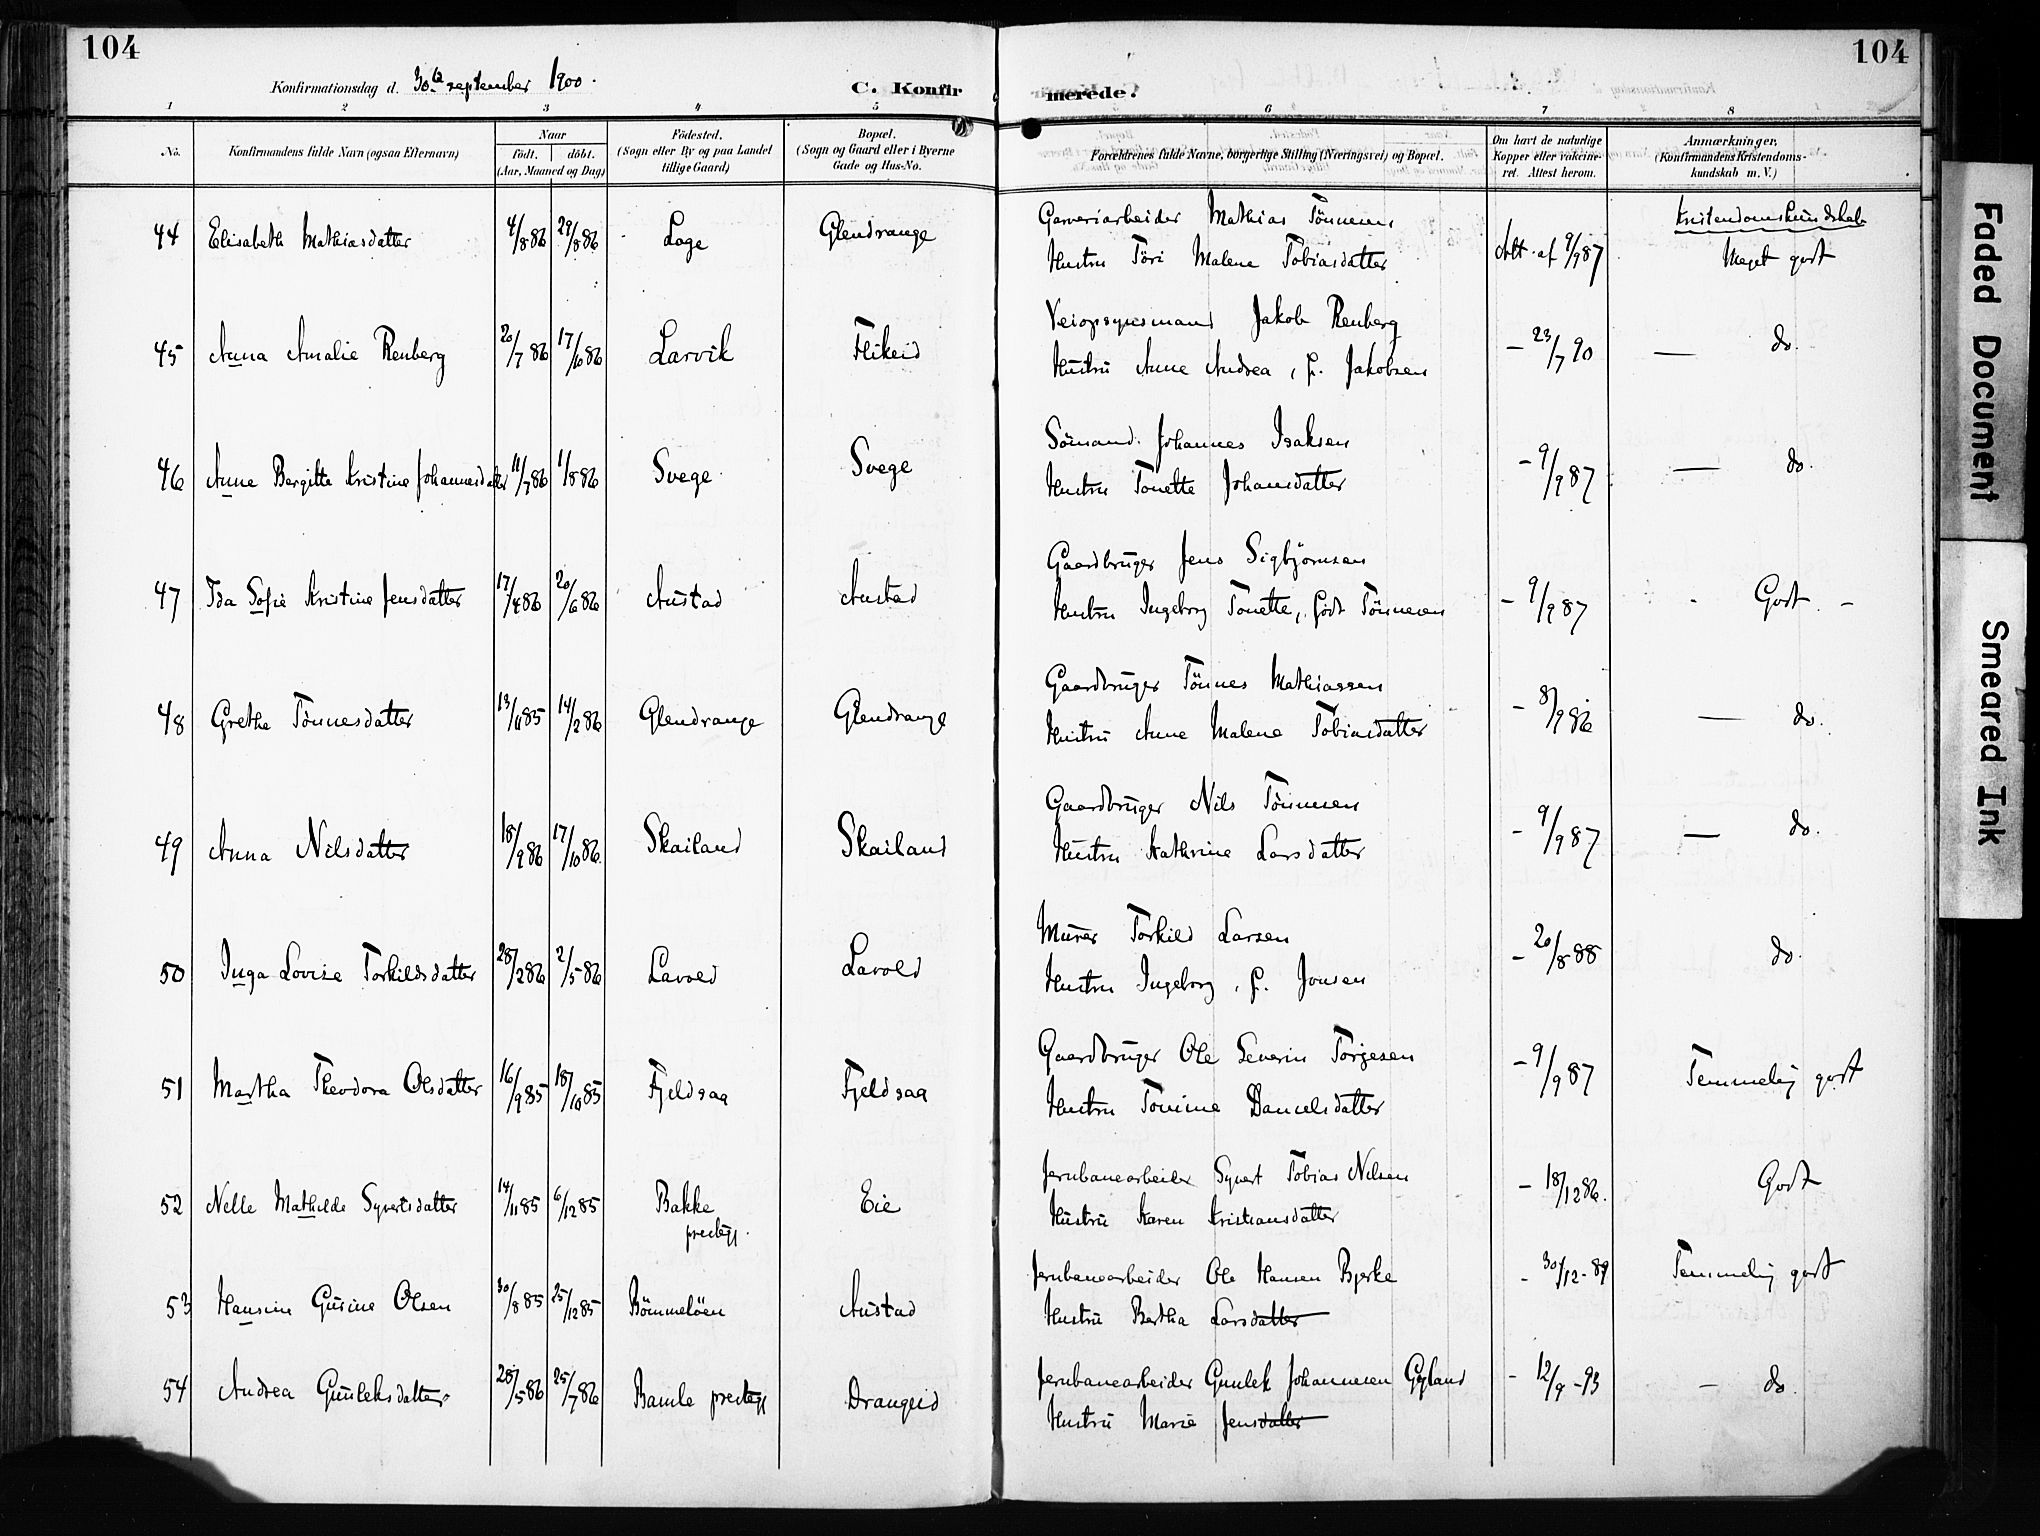 104
104
Konfirmationsdag d. 30te september 1900.
C. Konfirmerede.
1 2 3 4 5 6 7 8
No. Konfirmandens fulde Navn (ogsaa Efternavn) Naar födt. döbt. (Aar, Maaned og Dag) Födested. (Sogn eller By og paa Landet tillige Gaard) Bopæl. (Sogn og Gaard eller i Byerne Gade og Hus-No. Forældrenes fulde Navne, borgerlige Stilling (Næringsvei) og Bopæl. Om havt de naturlige Kopper eller vaccineret. Attest herom. Anmærkninger, (Konfirmandens Kristendomskundskab m. V.)
Kristendomskundskab
44 Elisabeth Mathiasdatter 4/8 86 29/8 86 Loge Glendrange Garveriarbeider Mathias Tönnesen Att. af 9/9 87 Meget godt
Hustru Töri Malene Tobiasdatter
45 Anna Amalie Renberg 20/7 86 17/10 86 Larvik Flikeid Veiopsynsmand Jakob Renberg — 23/7 90 — do.
Hustru Anne Andrea, f. Jakobsen
46 Anne Bergitte Kristine Johannesdatter 11/7 86 1/8 86 Svege Svege Sömand Johannes Isaksen - 9/9 87 — do.
Hustru Tonette Johansdatter
47 Ida Sofie Kristine Jensdatter 17/4 86 20/6 86 Austad Austad Gaardbruger Jens Sigbjörnsen - 9/9 87 Godt
Hustru Ingeborg Tonette, födt Tönnesen
48 Grethe Tönnesdatter 13/11 85 14/2 86 Glendrange Glendrange Gaardbruger Tönnes Mathiassen - 8/9 86 — do.
Hustru Anne Malene Tobiasdatter
49 Anna Nilsdatter 18/9 86 17/10 86. Skailand Skailand Gaardbruger Nils Tönnesen - 9/9 87 — do.
Hustru Kathrine Larsdatter
50 Inga Lovise Torkildsdatter 28/2 86 2/5 86 Lavold Lavold Murer Torkild Larsen - 20/8 88 do.
Hustru Ingeborg, f. Jonsen
51 Martha Theodora Olsdatter 16/9 85 18/10 85 Fjeldsaa Fjeldsaa Gaardbruger Ole Severin Torgesen - 9/9 87 Temmelig godt
Hustru Tomine Danielsdatter
52 Nelle Mathilde Syvertsdatter 14/11 85 6/12 85 Bakke prestegj. Eie Jernbanearbeider Syvert Tobias Nilsen - 18/12 86. Godt
Hustru Karen Kristiansdatter
53 Hansine Gusine Olsen 30/8 85 25/12 85 Bömmelöen Austad Jernbanearbeider Ole Hansen Bjerke - 30/12 - 89 Temmelig godt
Hustru Bertha Larsdatter
54 Andrea Gunleksdatter 28/5 86 25/7 86 Bamle prestegj Drangeid Jernbanearbeider Gunlek Johannesen Gyland - 12/9 - 93 — do.
Hustru Marie Jensdatter
Faded Document
Smeared Ink